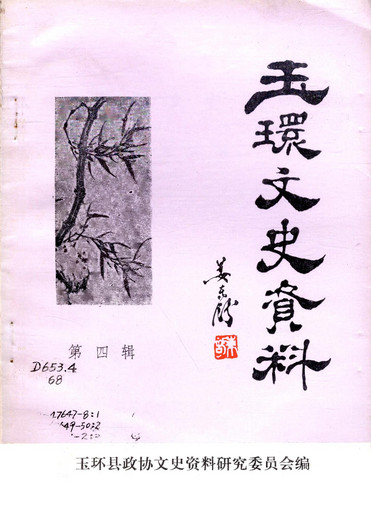 玉環文史資料
姜东舒
第四辑
D653.4
68
玉环县政协文史资料研究委员会编